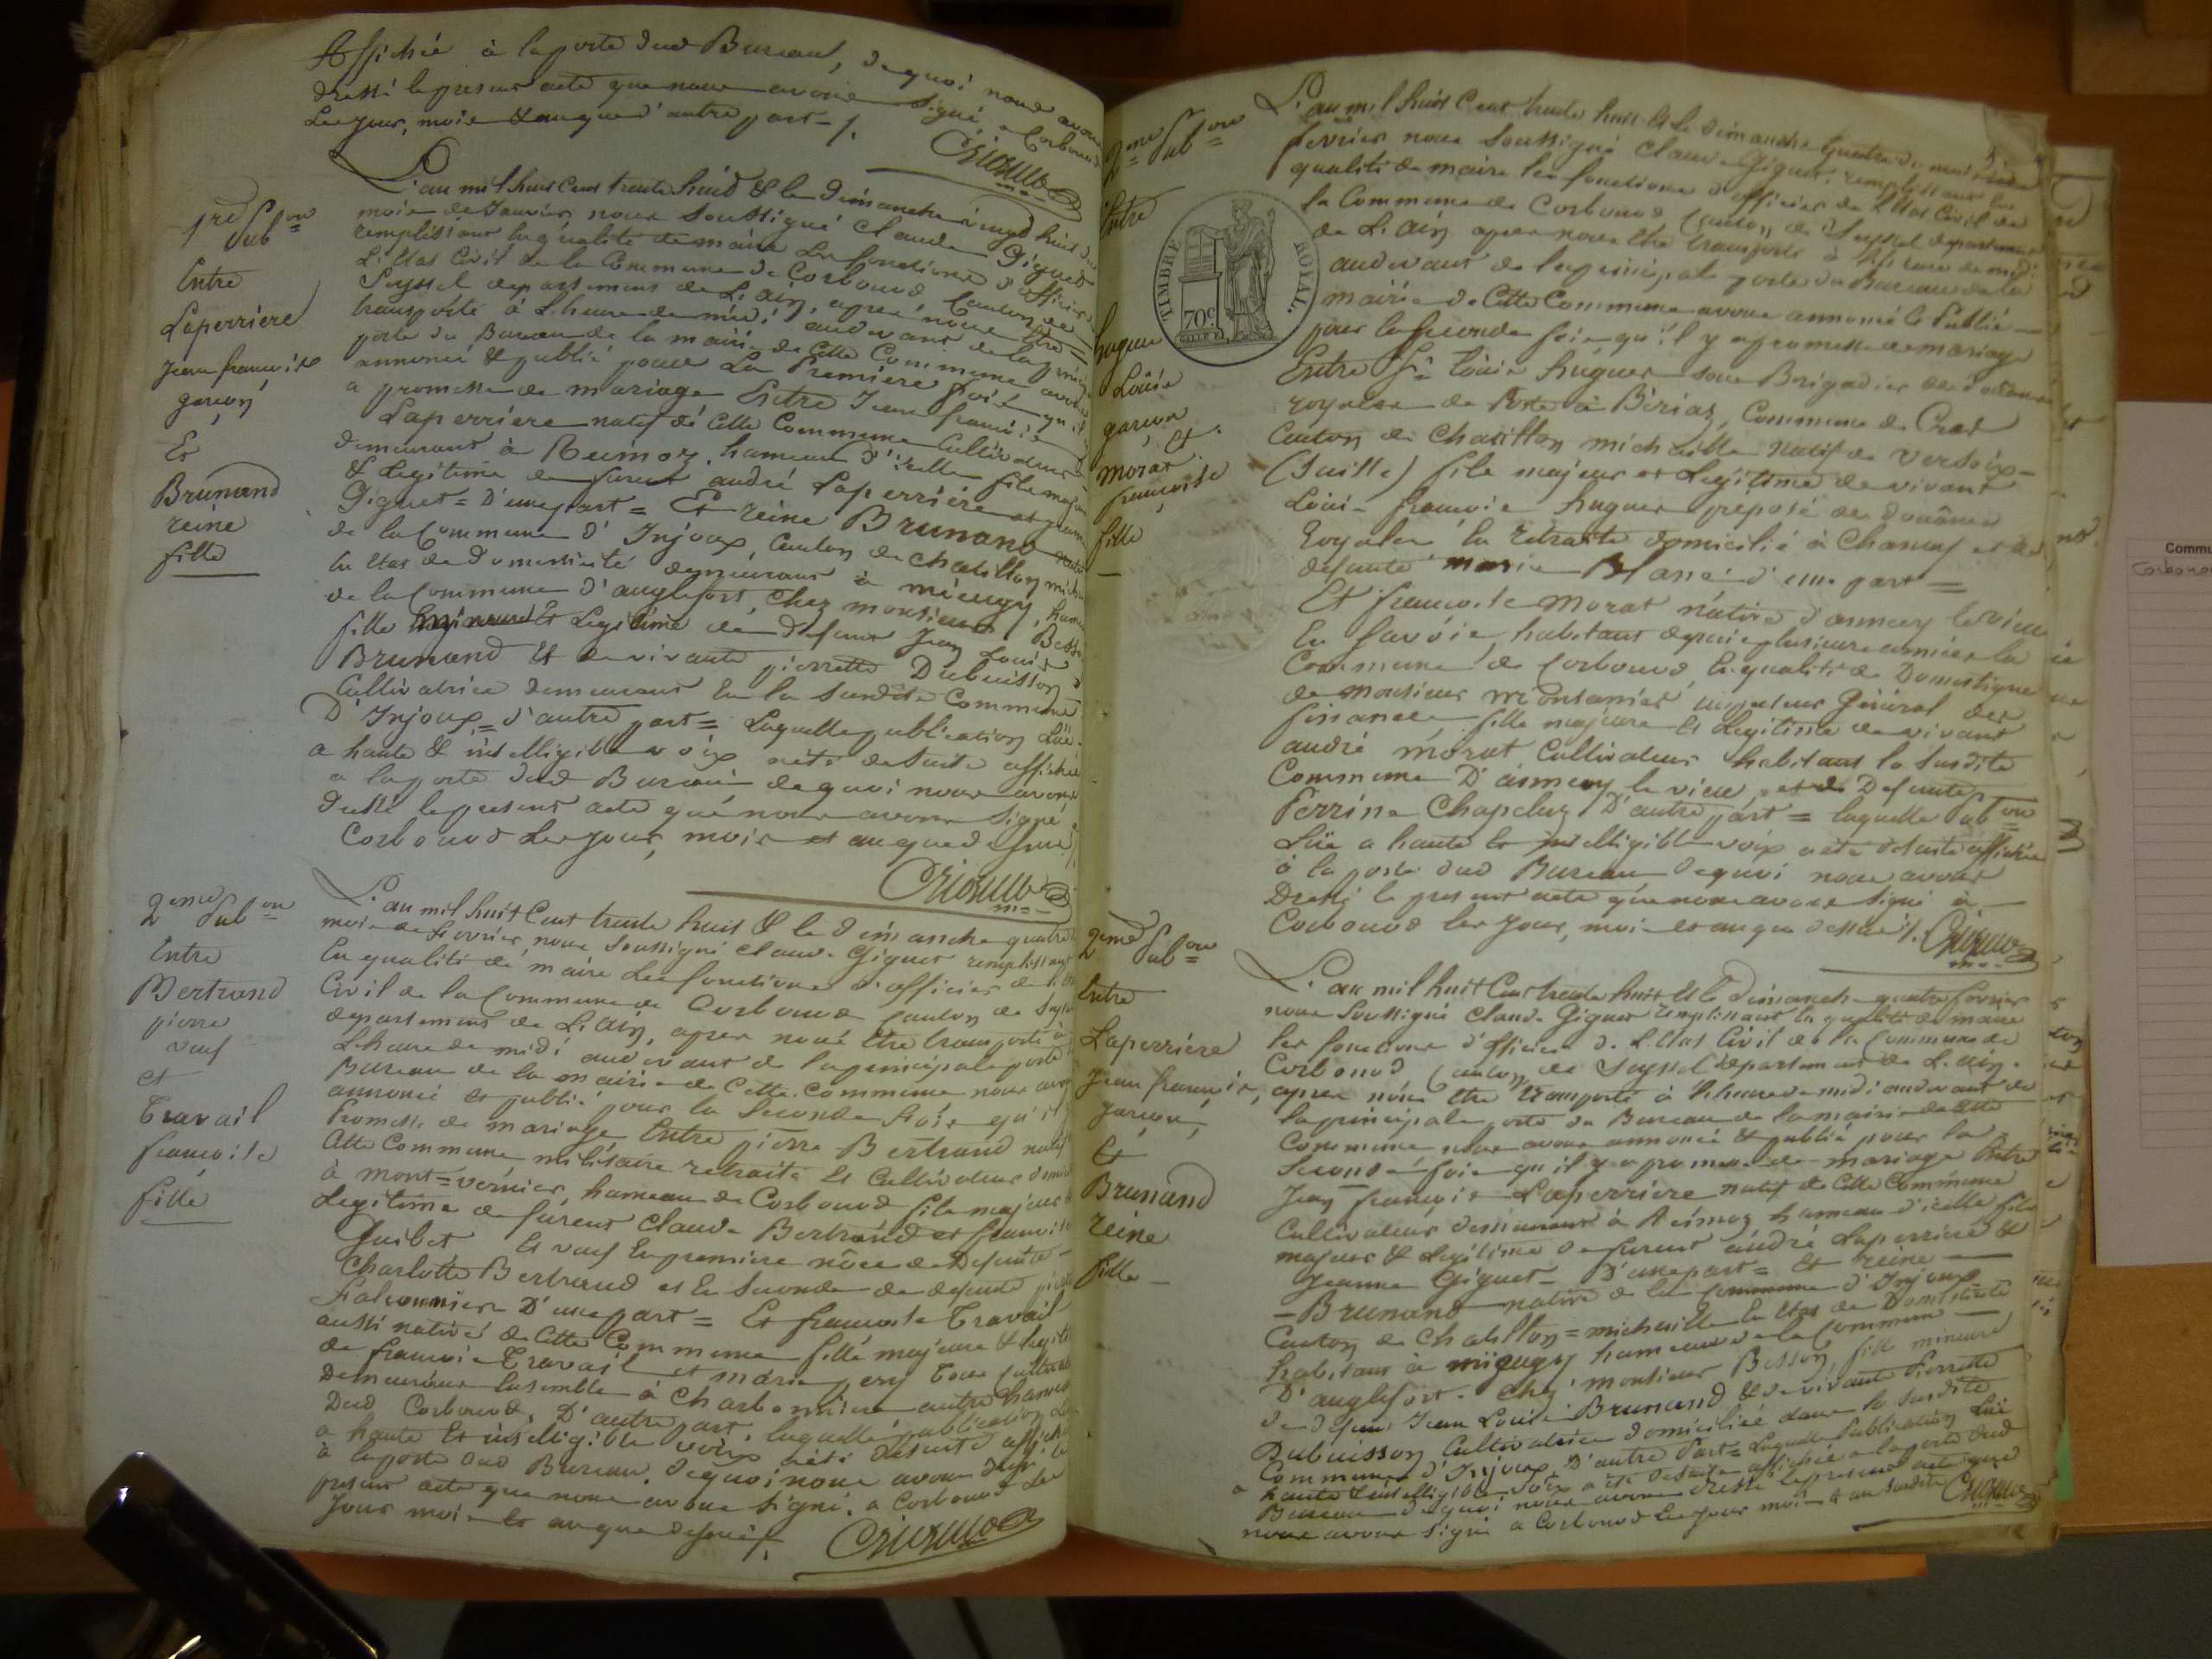 Affichée à la porte dud Bureau, de quoi nous avons
dressé le present acte que nous avons signé a Corbonod
Les jour, mois & an que d'autre part ./.
Giguet
1re Pub.on
Entre
Laperriere
Jean françois
garçon
Et
Brunand
reine
fille
L'an mil huit Cent trente huit & le dimanche vingt huit du
mois de Janvier nous soussigné Claude Giguet
remplissant en qualité de maire Les fonctions d'officier
L'Etat Civil de la Commune de Corbonod Canton de
Seyssel departement de L'ain, après nous être
transporté à L'heure de midi audevant de la princip
porte du Bureau de la mairie de Cette Commune avons
annoncé & publié pour La Premiere fois qu'il y
a promesse de mariage Entre Jean françois
Laperriere natif de Cette Commune Cultivateur
demeurant à Reimoz, hameau d'icelle fils majeur
& Legitime de furent andré Laperriere et jeanne
Giguet = D'une part = Et reine Brunand native
de la Commune d'Injoux, Canton de Chatillon mich
En Etat de domesticité demeurant à mieugy, ham
de la Commune d'anglefort, chez monsieur Besson
fille mineure Et Legitime de defunt Jean Louis
Brunand Et de vivante pierrette Dubuisson
Cultivatrice demeurant En la Susdite Commune
D'Injoux = d'autre part = Laquelle publication Lüe
a haute & intelligible voix a été de Suite affichée
a la porte dud Bureau de quoi nous avons
dressé le present acte que nous avons signé
Corbonod Les jour, mois et an que dessus ./.
Giguet
2eme Pub.on
Entre
Bertrand
pierre
veuf
et
Travail
françoise
fille
L'an mil huit Cent trente huit & le dimanche quatre
mois de fevrier nous Soussigné Claude Giguet remplissant
En qualité de maire Les fonctions d'officier de L'Etat
Civil de la Commune de Corbonod Canton de Seyssel
departement de L'ain, apres nous être transporté à
L'heure de midi audevant de la principale porte
Bureau de la mairie de Cette Commune nous avons
annoncé et publié pour la Seconde fois qu'il y
Promesse de mariage Entre pierre Bertrand natif
Cette Commune militaire retraité Et Cultivateur demeur
à mont=vernier, hameau de Corbonod fils majeur &
Legitime de furent Claude Bertrand et françoise
Guibet Et veuf En premiere nôce de Defunte
Charlotte Bertrand et En Seconde de defunte
Falconnier D'une part = Et françoise Travail
aussi native de Cette Commune fille majeure & legiti
de françois Travail et marie pery tous Cultivat
Demeurans Ensemble à Charbonniere autre hameau
Dud Corbonod, D'autre part. laquelle publication Lüe
a haute Et intelligible voix a été desuite affiché
à la porte dud Bureau. de quoi nous avons dressé le
present acte que nous avons signé, a Corbonod Les
Jour mois Et an que dessus ./.
Giguet
2eme Pub.on
Entre
huguer
Loüis
garçon
et
morat
françoise
fille
TIMBRE ROYAL.
70c
L'an mil huit Cent trente huit Et le dimanche quatre du mois de
fevrier nous Soussigné Claude Giguet, remplissant En
qualité de maire les fonctions d'officier de L'Etat Civil de
la Commune de Corbonod Canton de Seyssel departement
de L'ain apres nous être transporté à L'heure de midi
audevant de la principale porte du Bureau de la
mairie de Cette Commune avons annoncé Et Publié
pour la seconde fois qu'il y a promesse de mariage
Entre Sr Loüis huguer sous Brigadier des douanes
royales de Poste à Biriaz, Commune de Craz
Canton de Chatillon michaille natif de Versoix
(Suisse) fils majeur et Legitime de vivant
Loüis françois huguer preposé des douânes
Royales En Retraite domicilié à Chanay et de
defunte marie Blanc d'une part =
Et françoise morat native d'annecy le vieux
En Savoie, habitant depuis plusieurs années la
Commune de Corbonod, En qualité de Domestique
de monsieur montanier inspecteur Géneral des
finances fille majeure Et Legitime de vivant
andré morat Cultivateur habitant la Susdite
Commune D'annecy le vieux, et de Defunte
Perrine Chapeluz D'autre part = laquelle Pub.on
Lüe a haute Et intelligible voix a été desuite affichée
à la porte dud Bureau dequoi nous avons
Dressé le present acte que nous avons signé à
Corbonod les jour, mois et an que dessus ./. Giguet
2eme Pub.on
Entre
Laperriere
Jean françois,
garçon,
Et
Brunand
reine
fille
L'an mil huit Cent trente huit Et le dimanche quatre fevrier
nous Soussigné Claude Giguet remplissant En qualité de maire
les fonctions d'officier de L'Etat Civil de la Commune de
Corbonod Canton de Seyssel departement de L'ain.
apres nous être transporté à L'heure de midi audevant de
la principale porte du Bureau de la mairie de Cette
Commune nous avons annoncé & publié pour la
Seconde fois qu'il y a promesse de mariage Entre
Jean françois Laperriere natif de Cette Commune
Cultivateur demeurant à Reimoz hameau d'icelle fils
majeur & Legitime de furent andré Laperriere &
Jeanne Giguet D'une part = Et reine
Brunand native de la Commune d'Injoux
Canton de Chatillon=michaille En Etat de Domesticité
habitant à mieugy hameau de la Commune
D'anglefort. chez monsieur Besson, fille mineure
de defunt Jean Loüis Brunand & de vivante Pierrette
Dubuisson Cultivatrice domiciliée dans la susdite
Commune d'Injoux D'autre Part = Laquelle Publication Lüe
a haute & intelligible voix a été desuite affichée a la porte dud
Bureau dequoi nous avons dressé le present acte que
nous avons signé a Corbonod Les jour mois & an susdits Giguet
Commu
Corbonod